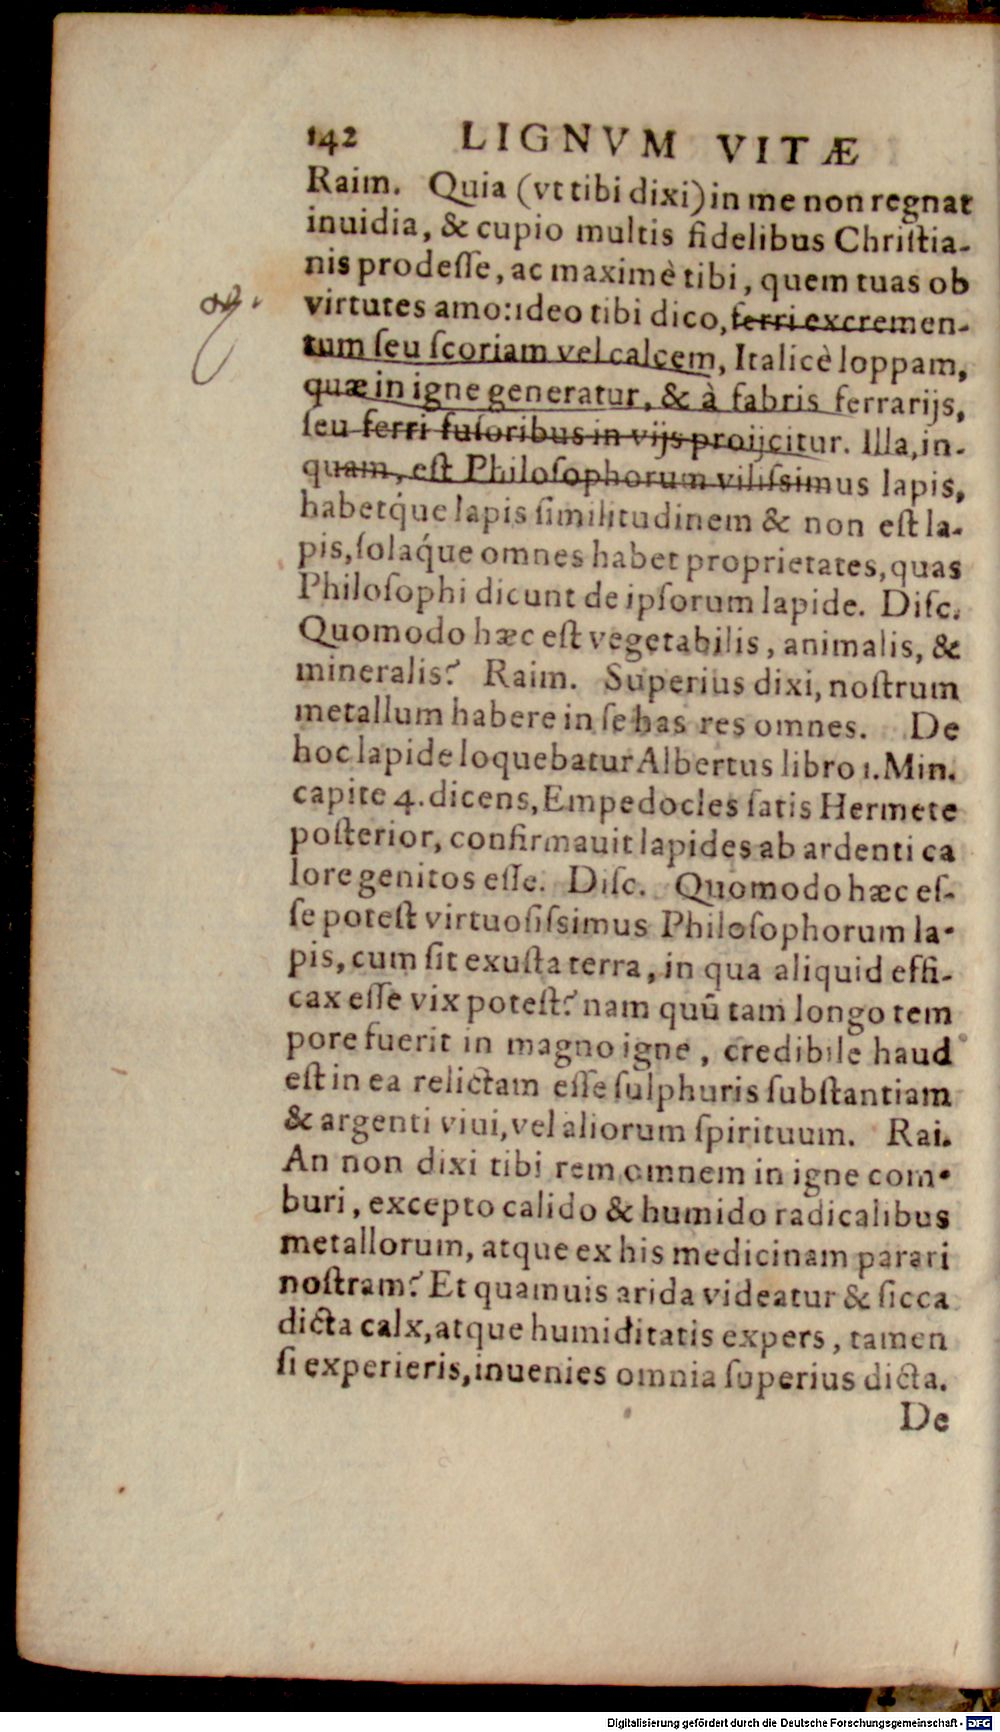 142 LIGNVM VITÆ
Raim. Quia (vt tibi dixi) in me non regnat
inuidia, & cupio multis fidelibus Chriſtia-
nis prodeſſe, ac maximè tibi, quem tuas ob
virtutes amo: ideo tibi dico, ferri excremen-
tum ſeu ſcoriam vel calcem, Italicè loppam,
quæ in igne generatur, & à fabris ferrarijs,
ſeu ferri fuſoribus in vijs proijcitur. Illa, in-
quam, eſt Philoſophorum viliſsimus lapis,
habetq́ue lapis ſimilitudinem & non eſt la-
pis, ſolaq́ue omnes habet proprietates, quas
Philoſophi dicunt de ipſorum lapide. Diſc.
Quomodo hæc eſt vegetabilis, animalis, &
mineralis? Raim. Superius dixi, noſtrum
metallum habere in ſe has res omnes. De
hoc lapide loquebatur Albertus libro 1. Min.
capite 4. dicens, Empedocles ſatis Hermete
poſterior, confirmauit lapides ab ardenti ca
lore genitos eſſe. Diſc. Quomodo hæc eſ-
ſe poteſt virtuoſiſsimus Philoſophorum la-
pis, cum ſit exuſta terra, in qua aliquid effi-
cax eſſe vix poteſt? nam quū tam longo tem
pore fuerit in magno igne, credibile haud
eſt in ea relictam eſſe ſulphuris ſubſtantiam
& argenti viui, vel aliorum ſpirituum. Rai.
An non dixi tibi rem omnem in igne com-
buri, excepto calido & humido radicalibus
metallorum, atque ex his medicinam parari
noſtram? Et quamuis arida videatur & ſicca
dicta calx, atque humiditatis expers, tamen
ſi experieris, inuenies omnia ſuperius dicta.
De
Digitalisierung gefördert durch die Deutsche Forschungsgemeinschaft - DFG